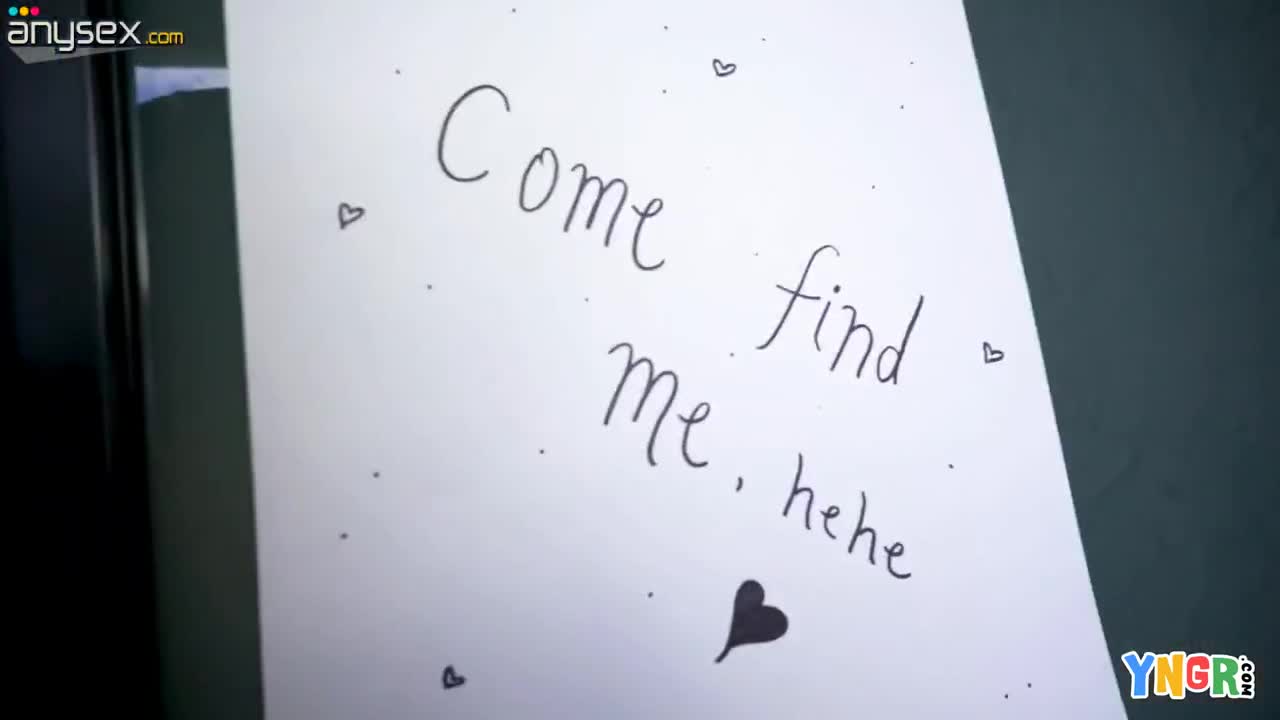 anysex.com
Come find
me, hehe
YNGR.COM